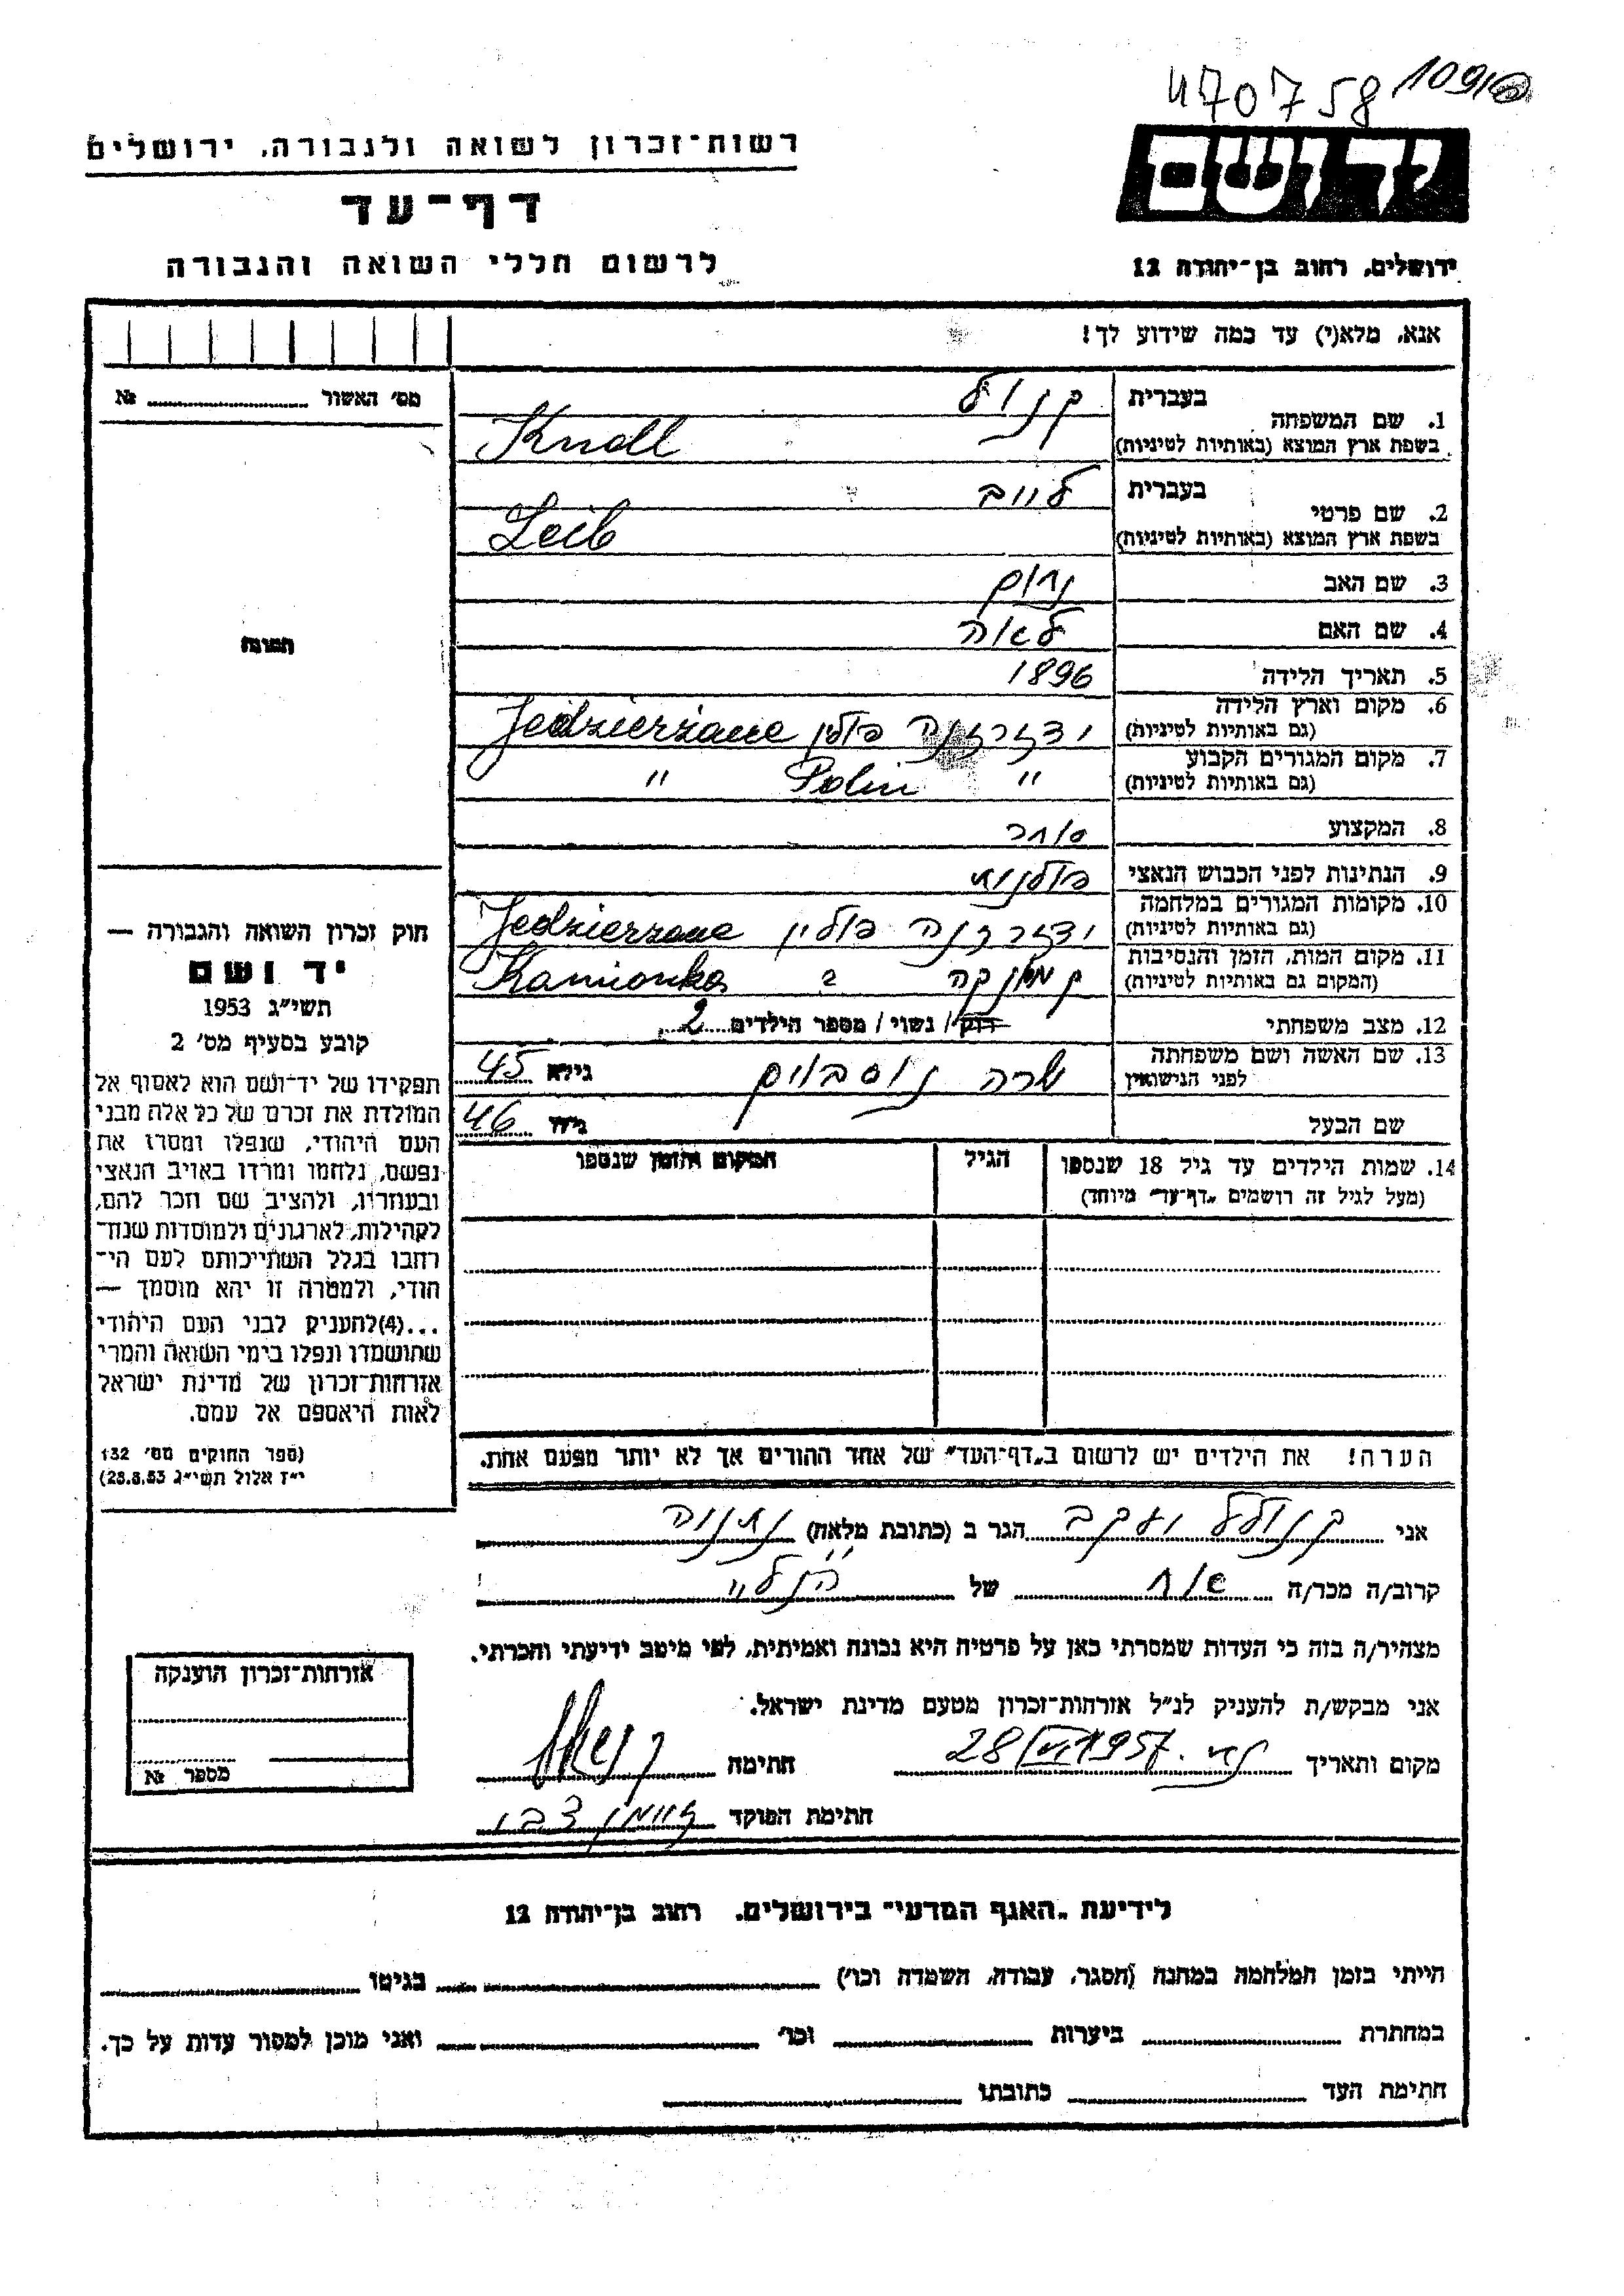 470758 1091
רשות־זכרון לשואה ולגבורה, ירושלים
יד ושם
דף־עד
לרשום חללי השואה והגבורה
ירושלים, רחוב בן־יהודה 12
אנא, מלא(י) עד כמה שידוע לך!
מס' האשור № 
1. שם המשפחה בעברית קנול
בשפת ארץ המוצא (באותיות לטיניות) Knoll
2. שם פרטי בעברית לייב
בשפת ארץ המוצא (באותיות לטיניות) Leib
3. שם האב נחום
4. שם האם לאה
תמונה
5. תאריך הלידה 1896
6. מקום וארץ הלידה
(גם באותיות לטיניות) פולין Jedzierzane
7. מקום המגורים הקבוע
(גם באותיות לטיניות) " Polin "
8. המקצוע סוחר
9. הנתינות לפני הכבוש הנאצי פולנית
10. מקומות המגורים במלחמה
(גם באותיות לטיניות) פולין Jedzierzane
11. מקום המות, הזמן והנסיבות
(המקום גם באותיות לטיניות) קמיונקה ? Kamionka
12. מצב משפחתי רווק / נשוי / מספר הילדים 2
13. שם האשה ושם משפחתה
לפני הנישואין שרה נוסבוים גילא 45
שם הבעל גילו 46
14. שמות הילדים עד גיל 18 שנספו
(מעל לגיל זה רושמים "דף־עד" מיוחד)
הגיל
המקום והזמן שנספו
חוק זכרון השואה והגבורה —
יד ושם
תשי"ג 1953
קובע בסעיף מס' 2
תפקידו של יד־ושם הוא לאסוף אל
המולדת את זכרם של כל אלה מבני
העם היהודי, שנפלו ומסרו את
נפשם, נלחמו ומרדו באויב הנאצי
ובעוזריו, ולהציב שם וזכר להם,
לקהילות, לארגונים ולמוסדות שנח־
רבו בגלל השתייכותם לעם הי־
הודי, ולמטרה זו יהא מוסמך —
...(4) להעניק לבני העם היהודי
שהושמדו ונפלו בימי השואה והמרי
אזרחות־זכרון של מדינת ישראל
לאות היאספם אל עמם.
(ספר החוקים מס' 132
י"ז אלול תשי"ג 28.8.53)
הערה! את הילדים יש לרשום ב"דף־העד" של אחד ההורים אך לא יותר מפעם אחת.
אני קנולל יעקב הגר ב (כתובת מלאה) נתניה
קרוב/ה מכר/ה של הנ"ל
מצהיר/ה בזה כי העדות שמסרתי כאן על פרטיה היא נכונה ואמיתית, לפי מיטב ידיעתי והכרתי.
אני מבקש/ת להעניק לנ"ל אזרחות־זכרון מטעם מדינת ישראל.
מקום ותאריך נת. 28/VI 1957 חתימה
חתימת הפוקד
אזרחות־זכרון הוענקה
מספר №
לידיעת "האגף המדעי" בירושלים, רחוב בן־יהודה 12
הייתי בזמן המלחמה במחנה (הסגר, עבודה, השמדה וכו') בגיטו
במחתרת ביערות וכו' ואני מוכן למסור עדות על כך.
חתימת העד כתובתו